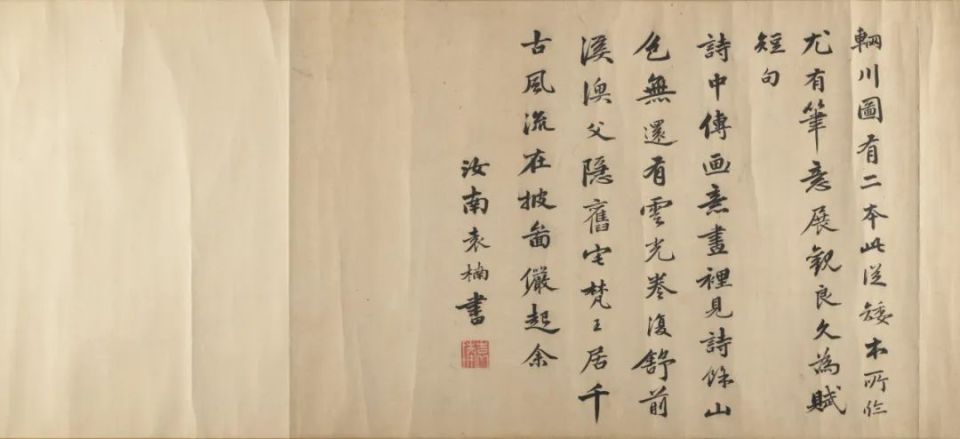 輞川圖有二本此從矮本所作
尤有筆意展觀良久為賦
短句
詩中傳画意畫裡見詩餘山
色無還有雲光卷復舒前
溪漁父隱舊宅梵王居千
古風流在披圖儼起余
汝南袁楠書